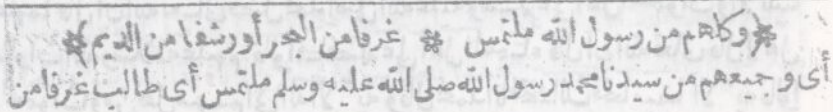 ﴿وكلهم من رسول الله ملتمس * غرفا من البحر أو رشفا من الديم﴾
أى وجميعهم من سيدنا محمد رسول الله صلى الله عليه وسلم ملتمس أى طالب غرفا من